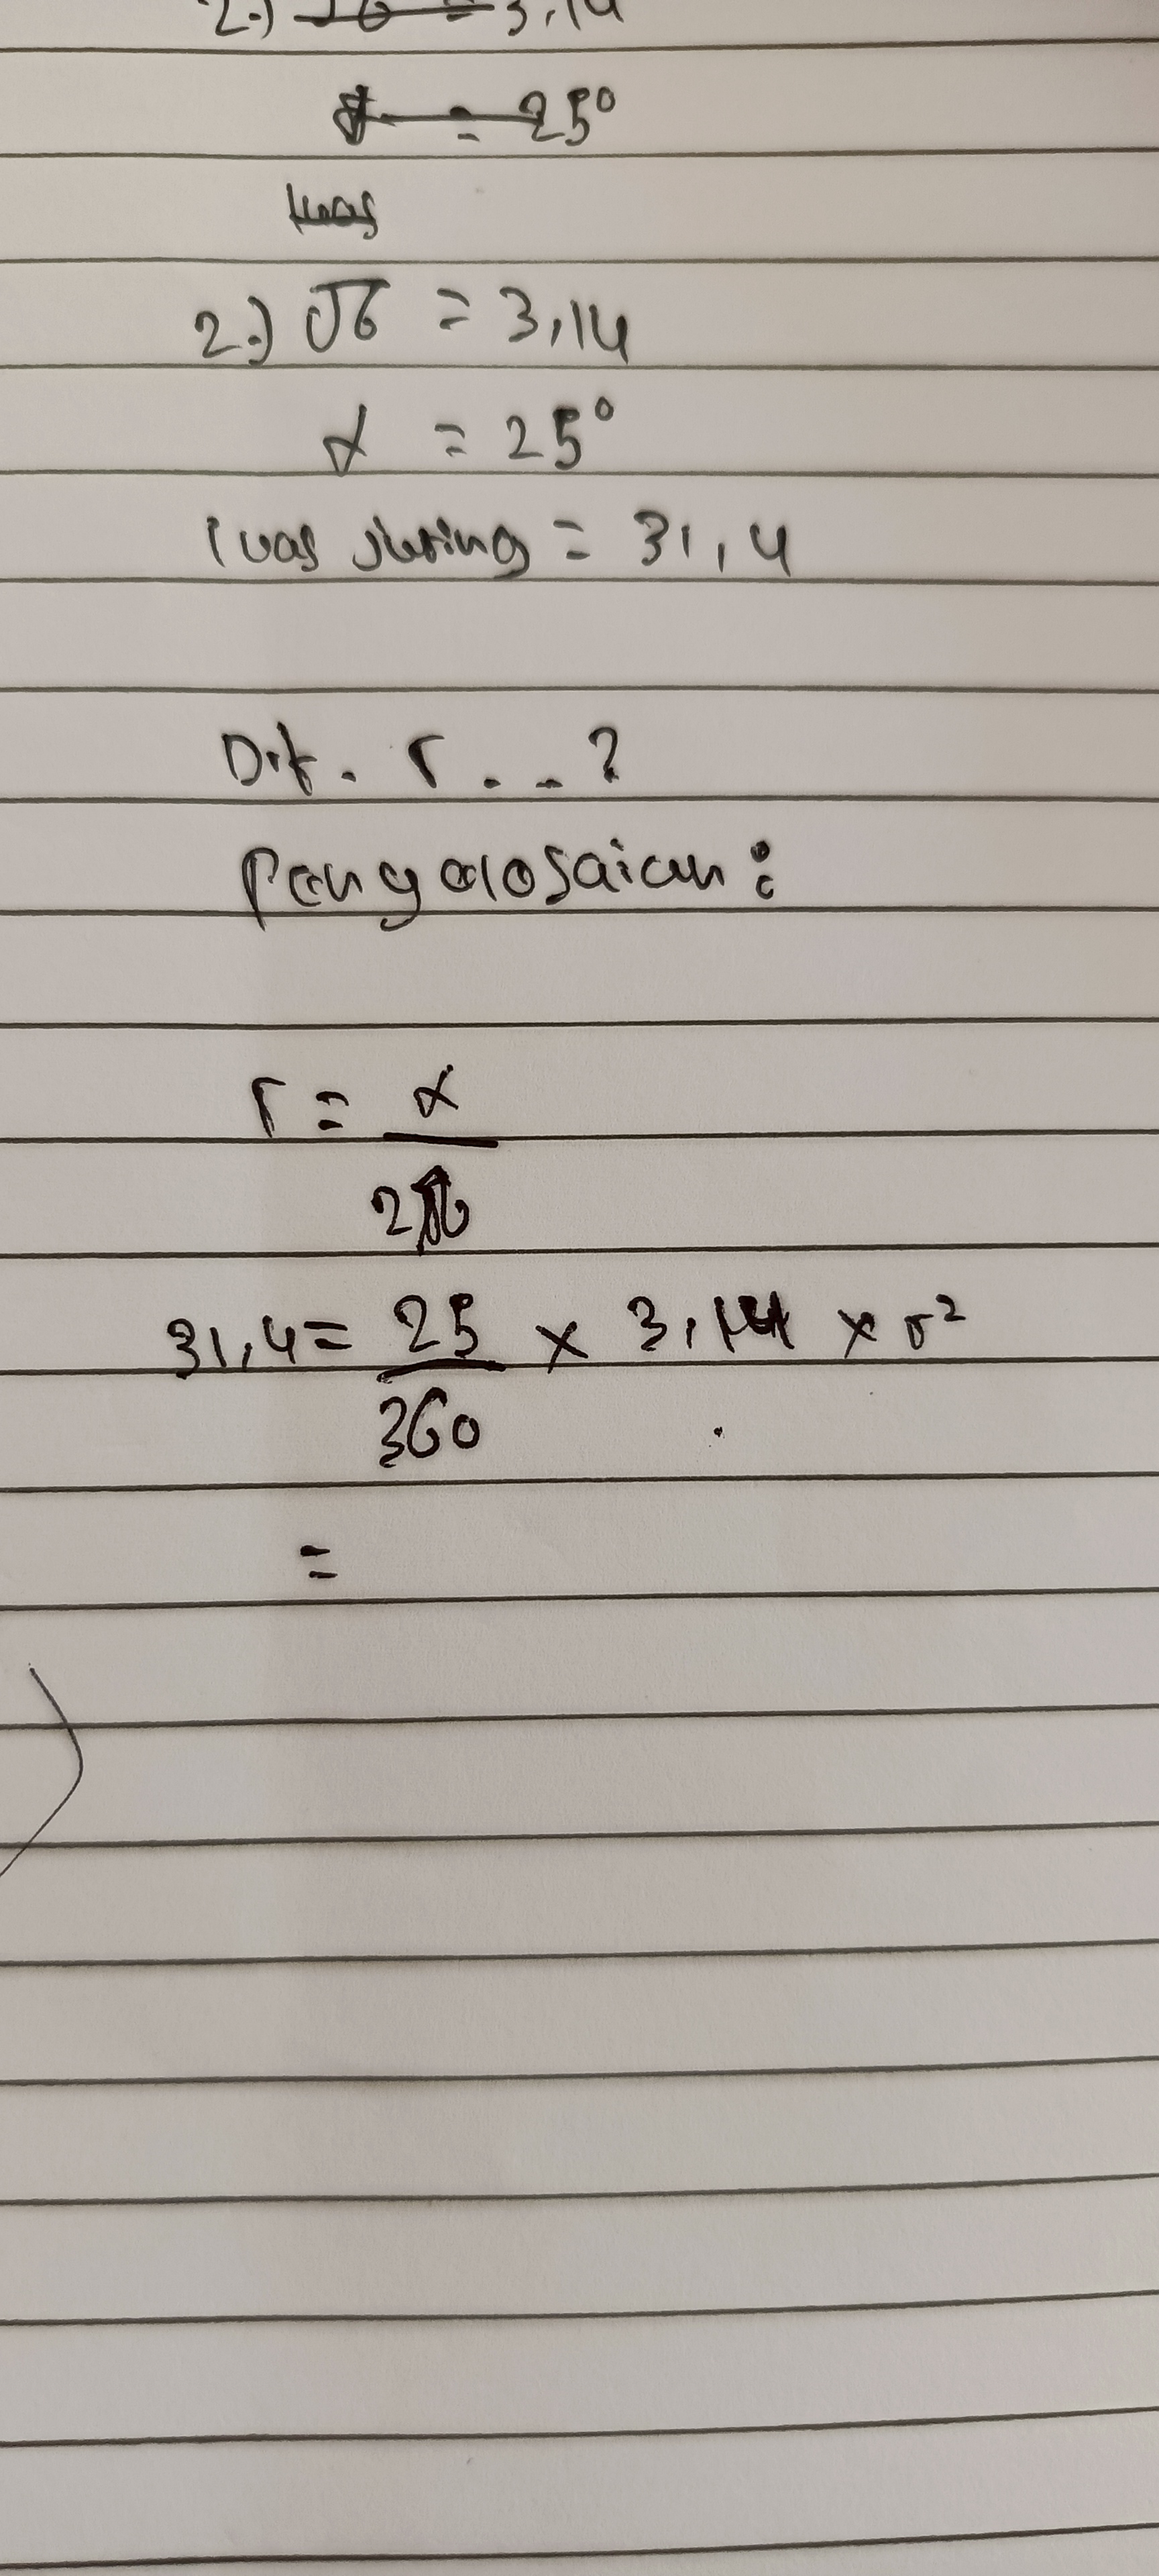 2.) π = 3,14
α = 25°
luas
2.) π = 3,14
α = 25°
luas juring = 31,4
Dit. r...?
Pengelosaian:
r = α
2π
31,4 = 25 × 3,14 × r²
360
=